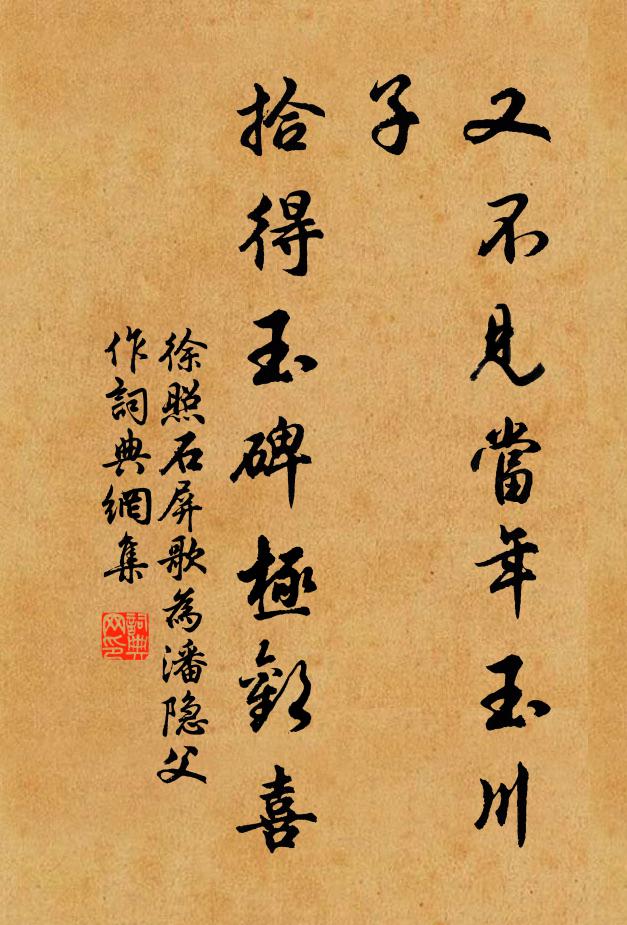 又不見當年玉川
子
拾得玉碑極歡喜
徐照石屏歌為潘隐父
作詞典網集
詞典
网印